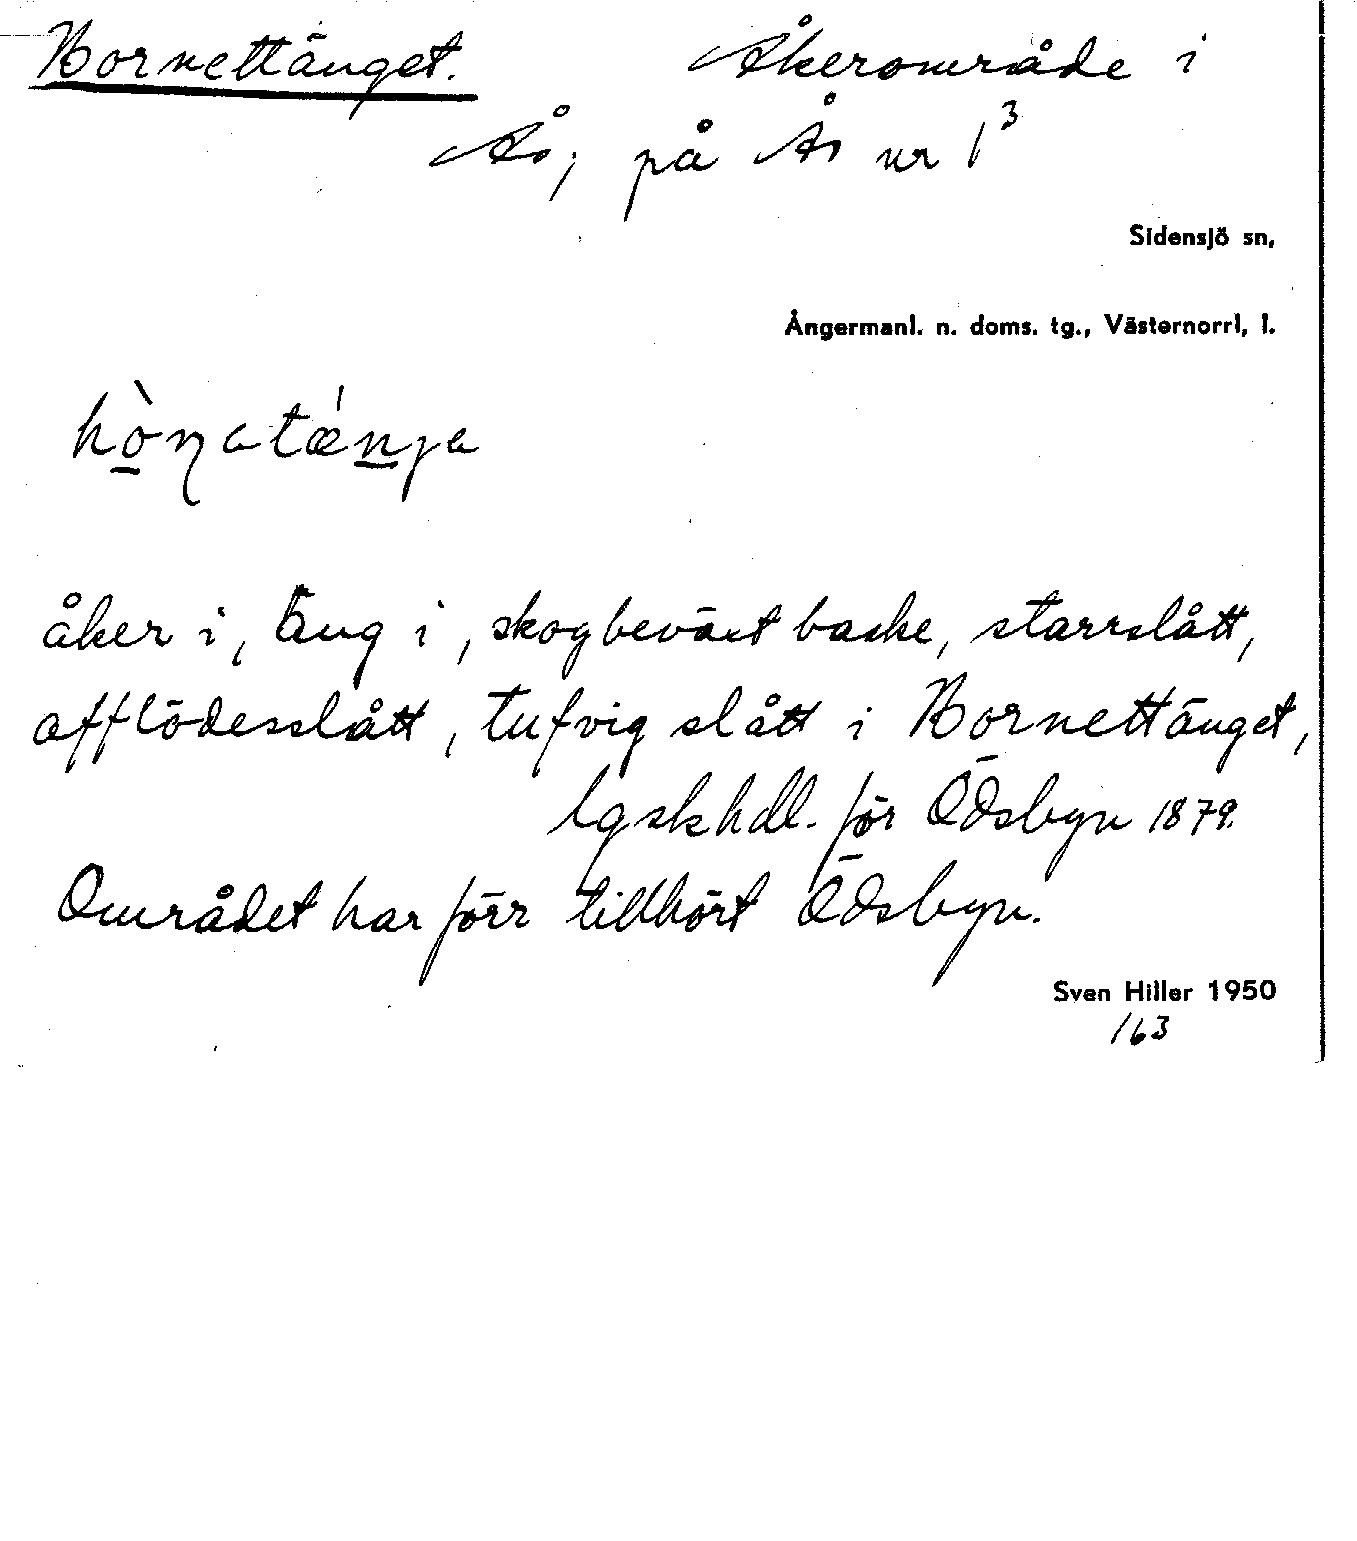 Hornettänget. Åkerområde i
Ås, på Ås nr 1³
Sidensjö sn,
Ångermanl. n. doms. tg., Västernorrl. l.
åker i, Äng i, skogbeväxt backe, starrslått,
afflödesslått, tufvig slått i Hornettänget,
lgskhdl. för Ödsbyn 1879.
Området har förr tillhört Ödsbyn.
Sven Hiller 1950
163